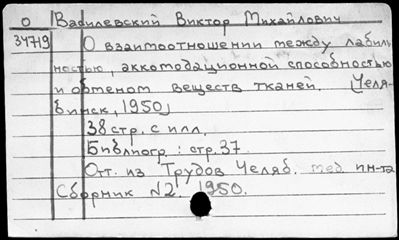 О Василевский Виктор Михайлович
34719 О взаимоотношении между лабиль-
ностью, аккомодационной способностью
и обменом веществ тканей. [Челя-
бинск, 1950]
38 стр. с илл.
Библиогр.: стр. 37.
Отт. из Трудов Челяб. мед ин-та
Сборник №2. 1950.